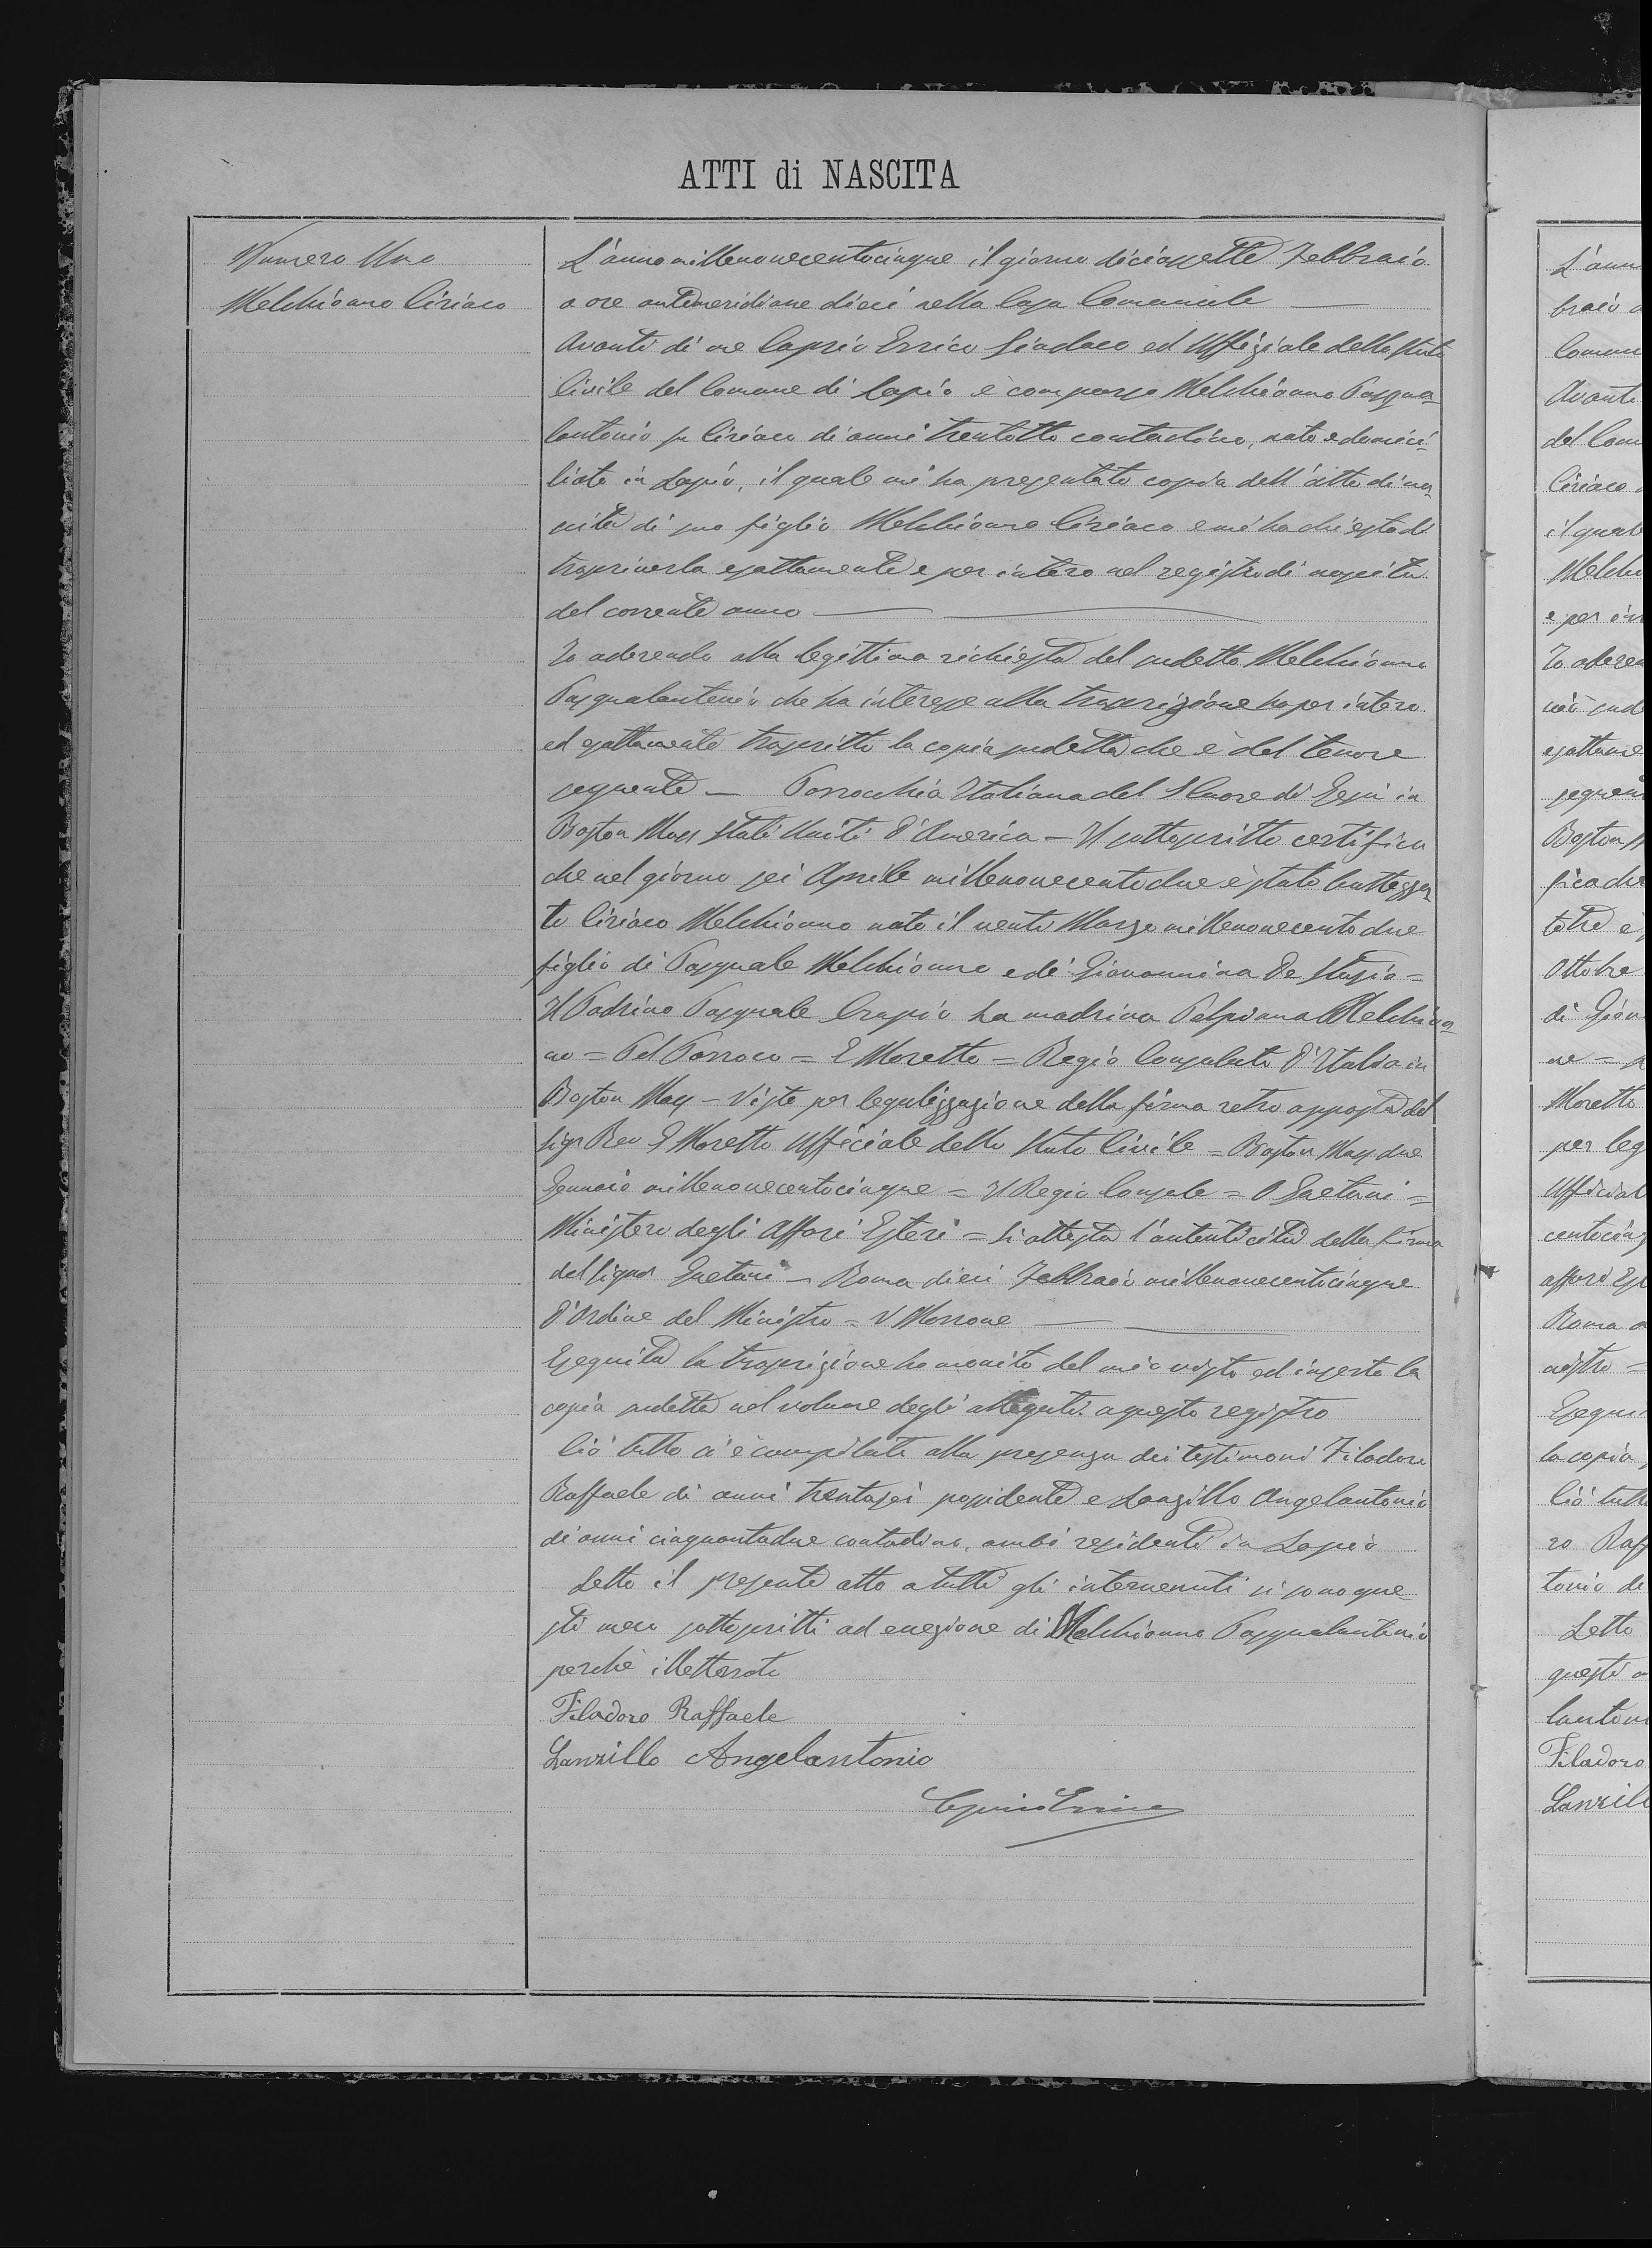 ATTI di NASCITA
Numero Uno
Melchionno Ciriaco
L'anno millenovecentocinque il giorno diciassette Febbraio
a ore antimeridiane dieci nella Casa Comunale
Avanti di me Caprio Errico Sindaco ed Uffiziale dello Stato
Civile del Comune di Lapio è comparso Melchionno Pasqua-
lantonio fu Ciriaco di anni trentotto contadino, nato e domici-
liato in Lapio, il quale mi ha presentato copia dell'atto di na-
scita di suo figlio Melchionno Ciriaco e mi ha chiesto di
trascriverla esattamente e per intero nel registro di nascita
del corrente anno
Io aderendo alla legittima richiesta del sudetto Melchionno
Pasqualantonio che ha interesse alla trascrizione ho per intero
ed esattamente trascritto la copia sudetta che è del tenore
seguente — Parrocchia Italiana del S Cuore di Gesù in
Boston Mass Stati Uniti d'America – Il sottoscritto certifica
che nel giorno sei Aprile millenovecentodue è stato battezza
to Ciriaco Melchionno nato il venti Marzo millenovecentodue
figlio di Pasquale Melchionno e di Giovannina De Stasio =
Il Padrino Pasquale Crapio La madrina Melchion-
no = Pel Parroco = E Moretto = Regio Consolato d'Italia in
Boston Mass – Visto per legalizzazione della firma retro apposta del
sigr Rev E Moretto Ufficiale dello Stato Civile = Boston Mass due
Gennaio millenovecentocinque = Il Regio Console = O Gaetani =
Ministero degli Affari Esteri = Si attesta l'autenticità della firma
del signor Gaetani – Roma dieci Febbraio millenovecentocinque
d'Ordine del Ministro = V Morrone
Eseguita la trascrizione ho munito del mio visto ed inserto la
copia sudetta nel volume degli allegati a questo registro
Ciò tutto si è compilato alla presenza dei testimoni Filadoro
Raffaele di anni trentasei possidente e Lanzillo Angelantonio
di anni cinquantadue contadino, ambi residenti in Lapio
Letto il presente atto a tutti gli intervenuti si sono que
sti meco sottoscritti ad eccezione di Melchionno Pasqualantonio
perchè illetterato
Filadoro Raffaele
Lanzillo Angelantonio
Caprio Errico
L'ann
braio a
Comun
Avanti
del Com
Ciriaco
il quale
Melchi
e per in
Io aderen
nio sud
esattame
seguen
Boston
fica che
Ottobre
di Giov
Moretto
per leg
Ufficial
centocinq
affari Est
Roma
nistro =
Esegui
la copia
Ciò tutt
ro Raff
tonio di
Letto
questi
lanton
Filadoro
Lanzill